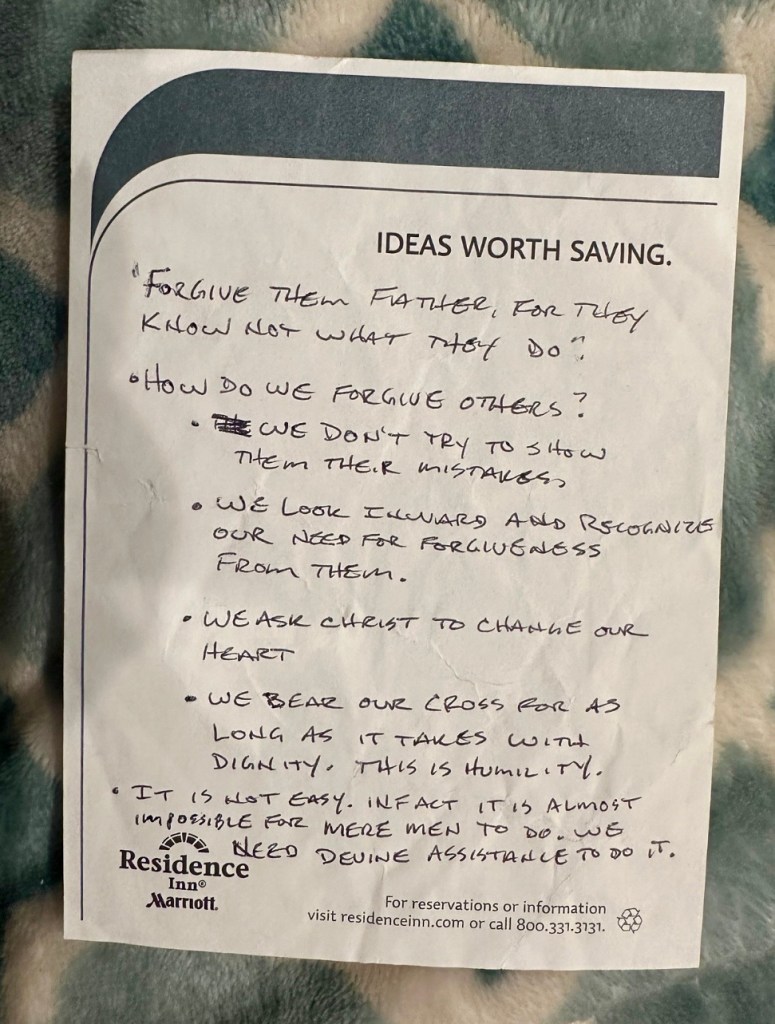 IDEAS WORTH SAVING.
"FORGIVE THEM FATHER, FOR THEY
KNOW NOT WHAT THEY DO".
• HOW DO WE FORGIVE OTHERS?
• WE DON'T TRY TO SHOW
THEM THEIR MISTAKES.
• WE LOOK INWARD AND RECOGNIZE
OUR NEED FOR FORGIVENESS
FROM THEM.
• WE ASK CHRIST TO CHANGE OUR
HEART
• WE BEAR OUR CROSS FOR AS
LONG AS IT TAKES WITH
DIGNITY. THIS IS HUMILITY.
• IT IS NOT EASY. INFACT IT IS ALMOST
IMPOSSIBLE FOR MERE MEN TO DO. WE
NEED DEVINE ASSISTANCE TO DO IT.
Residence
Inn®
Marriott.
For reservations or information
visit residenceinn.com or call 800.331.3131.